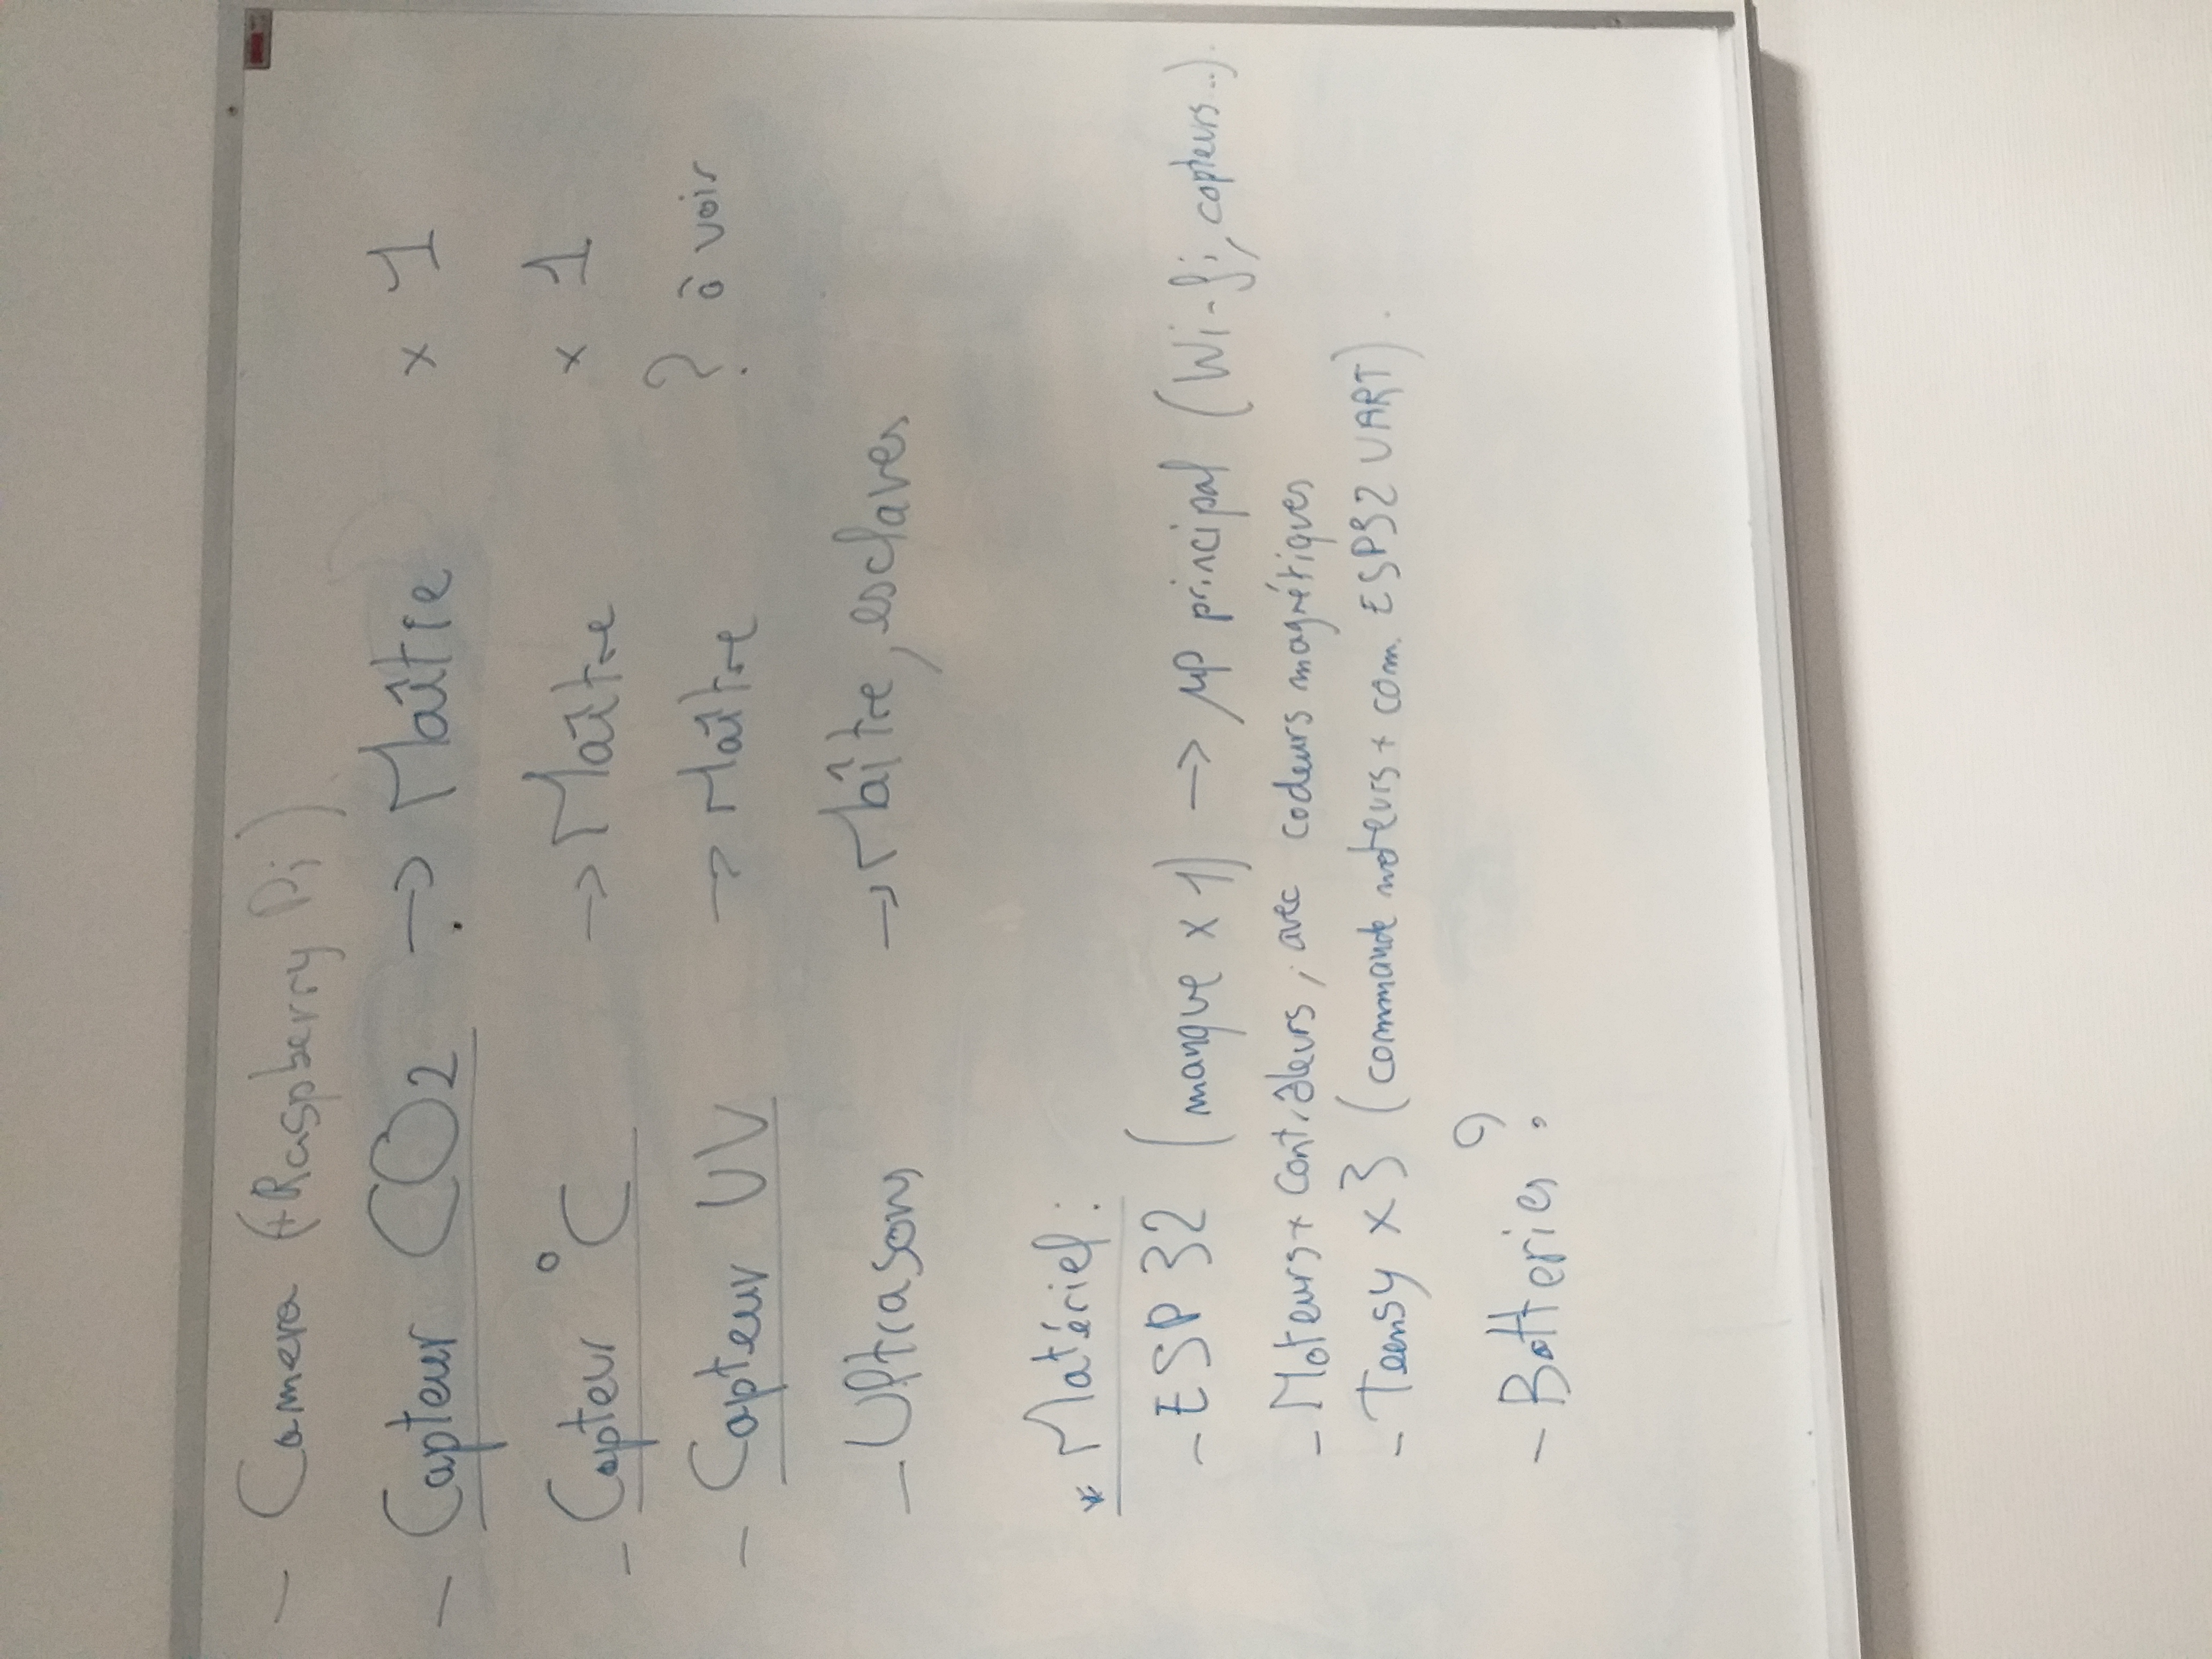 - Camera (+Raspberry Pi)
- Capteur CO2 -> Maître x 1
- Capteur °C -> Maître x 1
- Capteur UV -> Maître ? à voir
- Ultrasons -> Maître, esclaves
* Matériel :
- ESP 32 (manque x 1) -> µP principal (Wi-fi, capteurs...).
- Moteurs + Contrôleurs, avec codeurs magnétiques
- Teensy x 3 (commande moteurs + com. ESP32 UART).
- Batteries ?